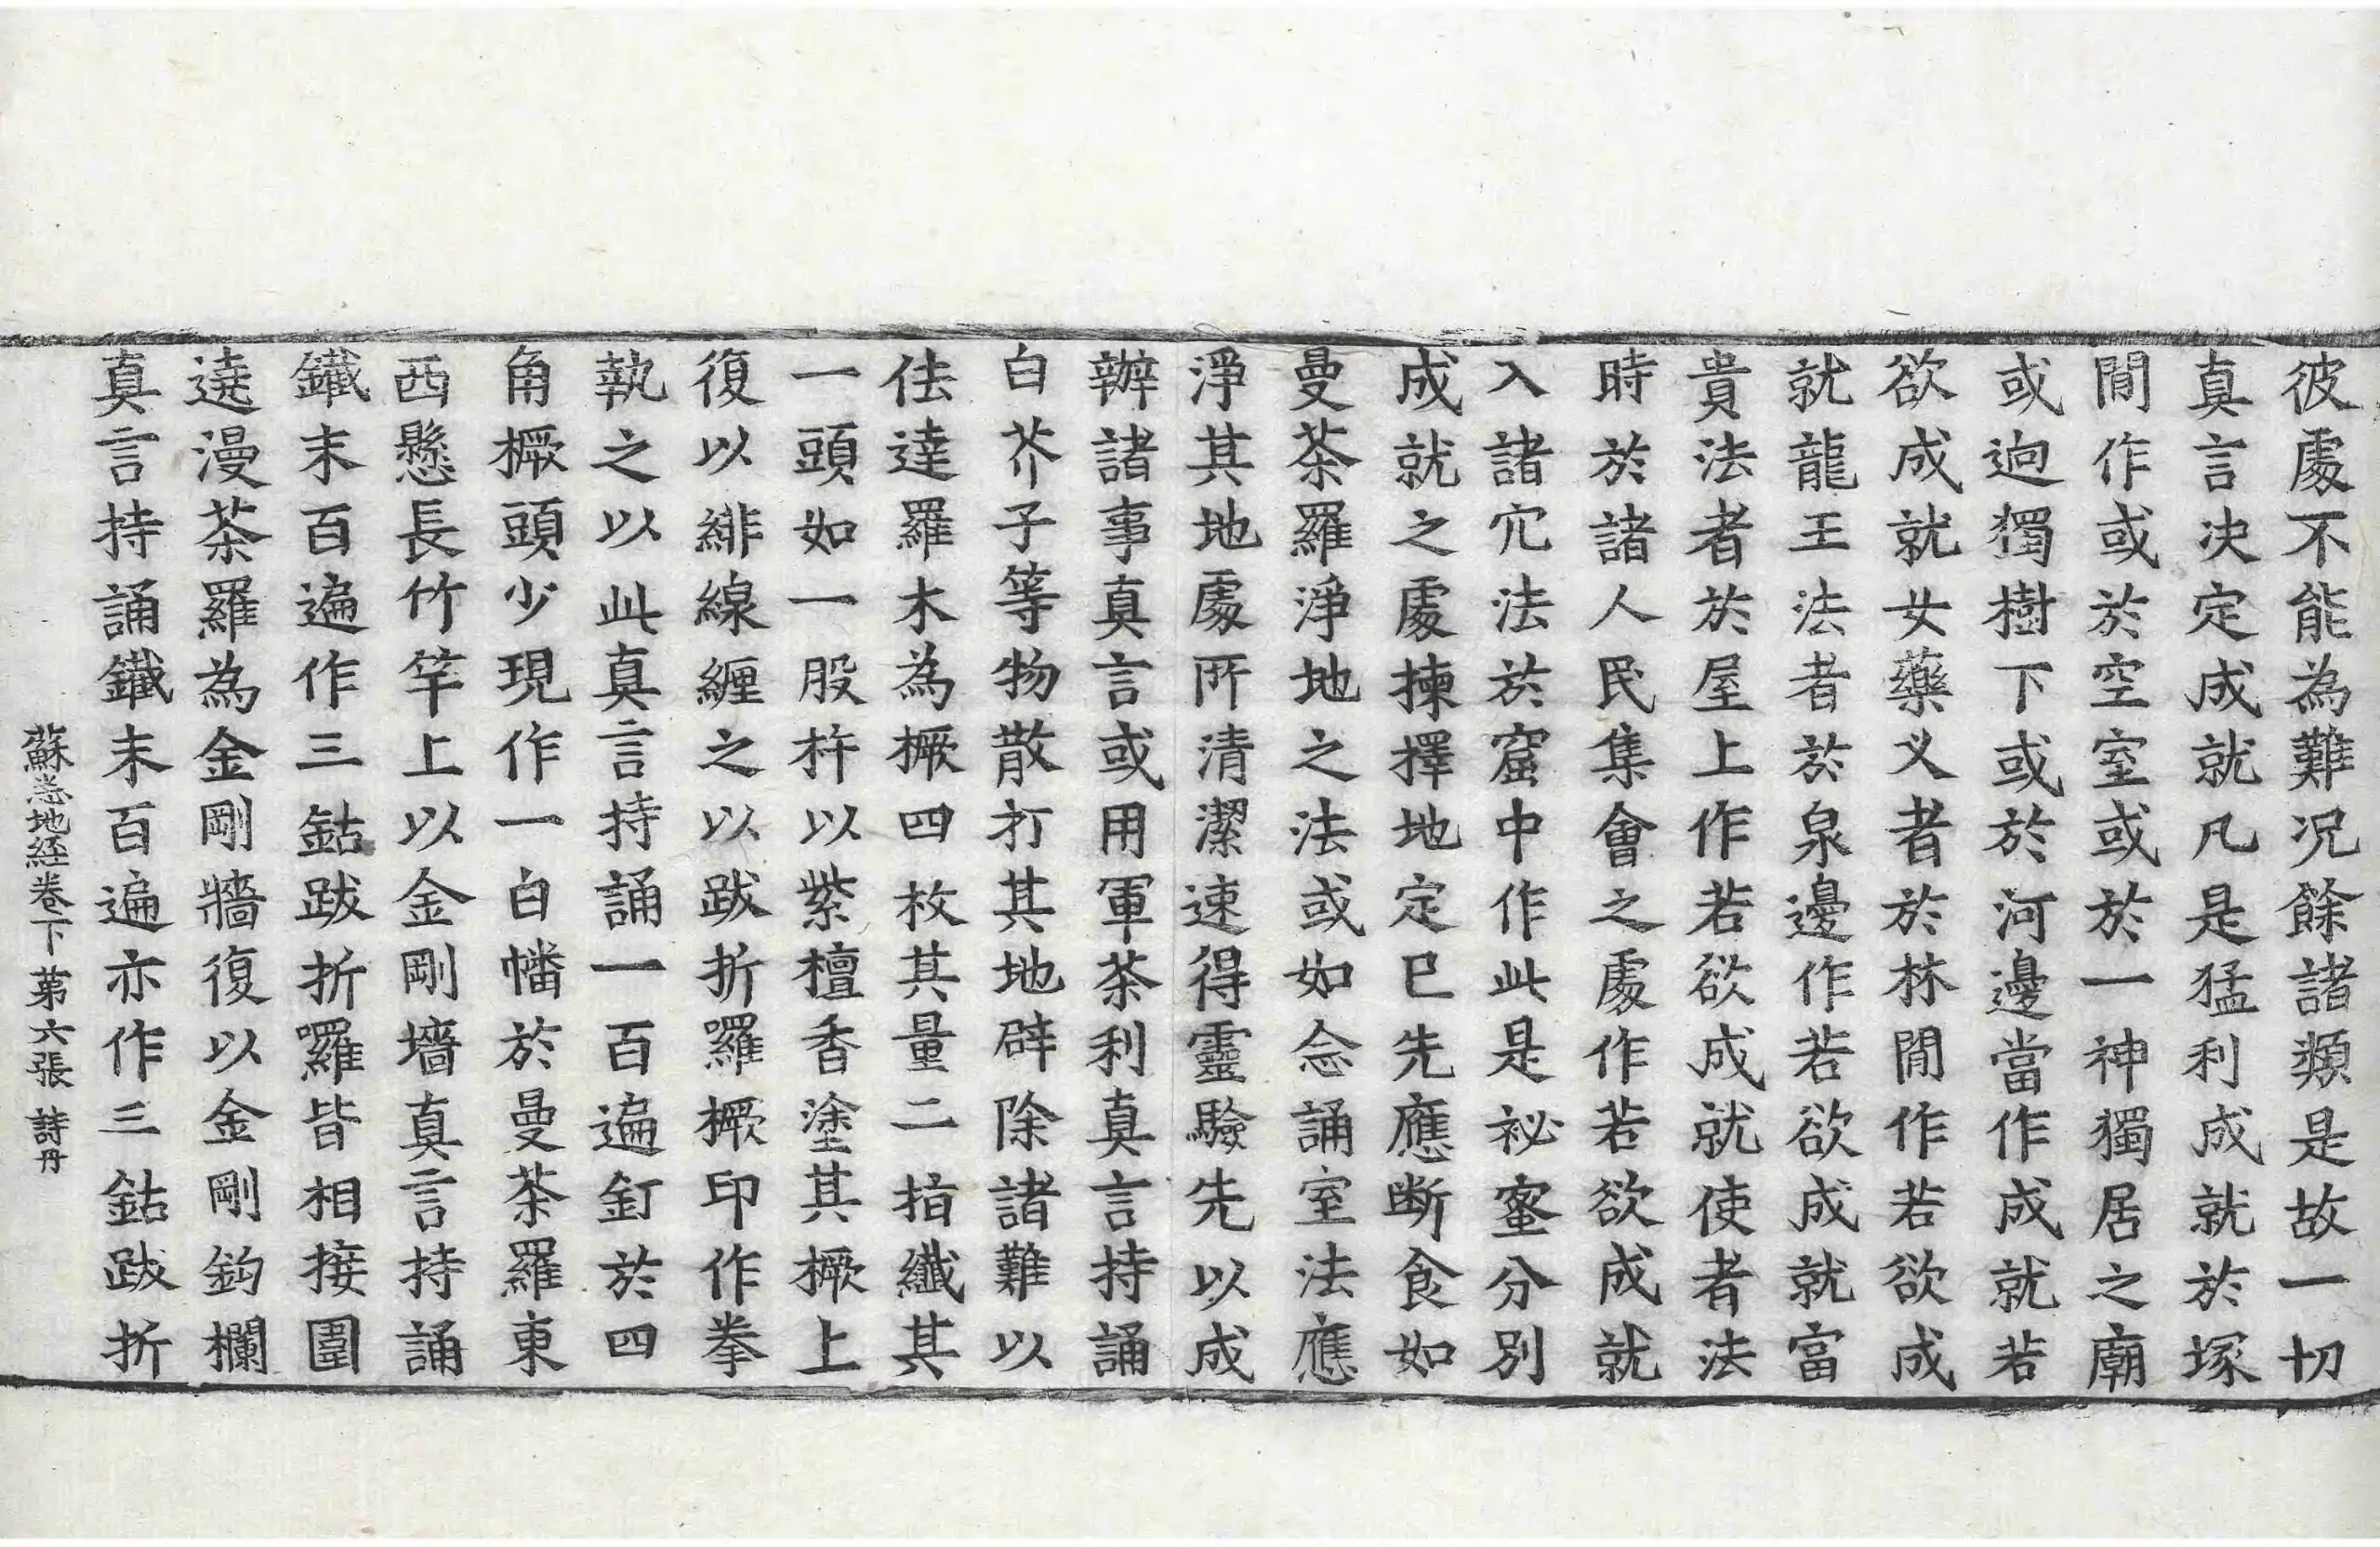 彼處不能為難况餘諸類是故一切
真言决定成就凡是猛利成就於塚
閒作或於空室或於一神獨居之廟
或逈獨樹下或於河邊當作成就若
欲成就女藥义者於林閒作若欲成
就龍王法者於泉邊作若欲成就富
貴法者於屋上作若欲成就使者法
時於諸人民集會之處作若欲成就
入諸穴法於窟中作此是祕蜜分別
成就之處揀擇地定已先應断食如
曼荼羅淨地之法或如念誦室法應
淨其地處所清潔速得靈驗先以成
辦諸事真言或用軍荼利真言持誦
白芥子等物散打其地辟除諸難以
佉達羅木為橛四枚其量二指纖其
一頭如一股杵以紫檀香塗其橛上
復以緋線纏之以跋折囉橛印作拳
執之以此真言持誦一百遍釘於四
角橛頭少現作一白幡於曼荼羅東
西懸長竹竿上以金剛墻真言持誦
鐵末百遍作三鈷跋折囉皆相接圍
遶漫荼羅為金剛牆復以金剛鉤欄
真言持誦鐵末百遍亦作三鈷跋折
蘇悉地経卷下 苐六張 詩丹